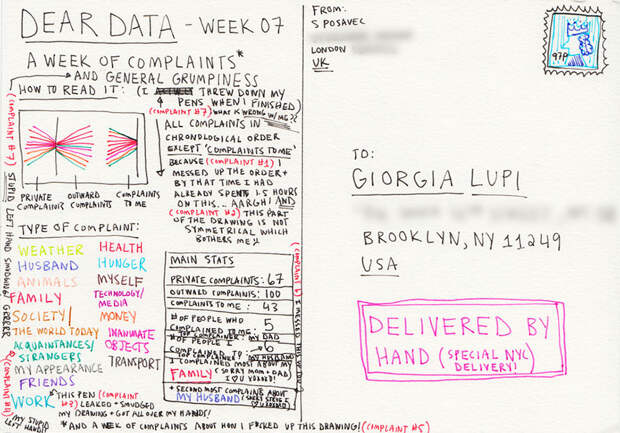 DEAR DATA - WEEK 07
A WEEK OF COMPLAINTS*
AND GENERAL GRUMPINESS
HOW TO READ IT:
(I THREW DOWN MY
4 PENS WHEN I FINISHED)
(COMPLAINT #7) WHAT IS WRONG W/ME??
ALL COMPLAINTS IN
CHRONOLOGICAL ORDER
EXCEPT 'COMPLAINTS TO ME'
BECAUSE (COMPLAINT #1) I
MESSED UP THE ORDER +
BY THAT TIME I HAD
ALREADY SPENT 1.5 HOURS
ON THIS... AARGH! AND
(COMPLAINT #2) THIS PART
OF THE DRAWING IS NOT
SYMMETRICAL WHICH
BOTHERS ME
PRIVATE COMPLAINTS
OUTWARD COMPLAINTS
COMPLAINTS TO ME
(COMPLAINT #7) STUPID LEFT HAND SMUDGING! GRRRRR
TYPE OF COMPLAINT:
WEATHER
HUSBAND
ANIMALS
FAMILY
SOCIETY/
THE WORLD TODAY
ACQUAINTANCES/
STRANGERS
MY APPEARANCE
FRIENDS
WORK
HEALTH
HUNGER
MYSELF
TECHNOLOGY/
MEDIA
MONEY
INANIMATE
OBJECTS
TRANSPORT
* THIS PEN (COMPLAINT
#3) LEAKED + SMUDGED
MY DRAWING + GOT ALL OVER MY HANDS!
(COMPLAINT #4)
MY STUPID
LEFT HAND!!
MAIN STATS
PRIVATE COMPLAINTS: 67
OUTWARD COMPLAINTS: 100
COMPLAINTS TO ME: 43
# OF PEOPLE WHO
COMPLAINED TO ME: 5
* TOP COMPLAINER: MY DAD
# OF PEOPLE I
COMPLAINED TO: 6
TOP COMPLAINED TO: MY HUSBAND
I COMPLAINED MOST ABOUT MY
FAMILY (SORRY MOM + DAD
I ♡ U XOXO!)
* SECOND MOST COMPLAINTS ABOUT
MY HUSBAND
(COMPLAINT I MESSED THIS
* AND A WEEK OF COMPLAINTS ABOUT HOW I FUCKED UP THIS DRAWING! (COMPLAINT #5)
FROM:
S POSAVEC
LONDON
UK
97P
TO:
GIORGIA LUPI
BROOKLYN, NY 11249
USA
DELIVERED BY
HAND (SPECIAL NYC
DELIVERY!)